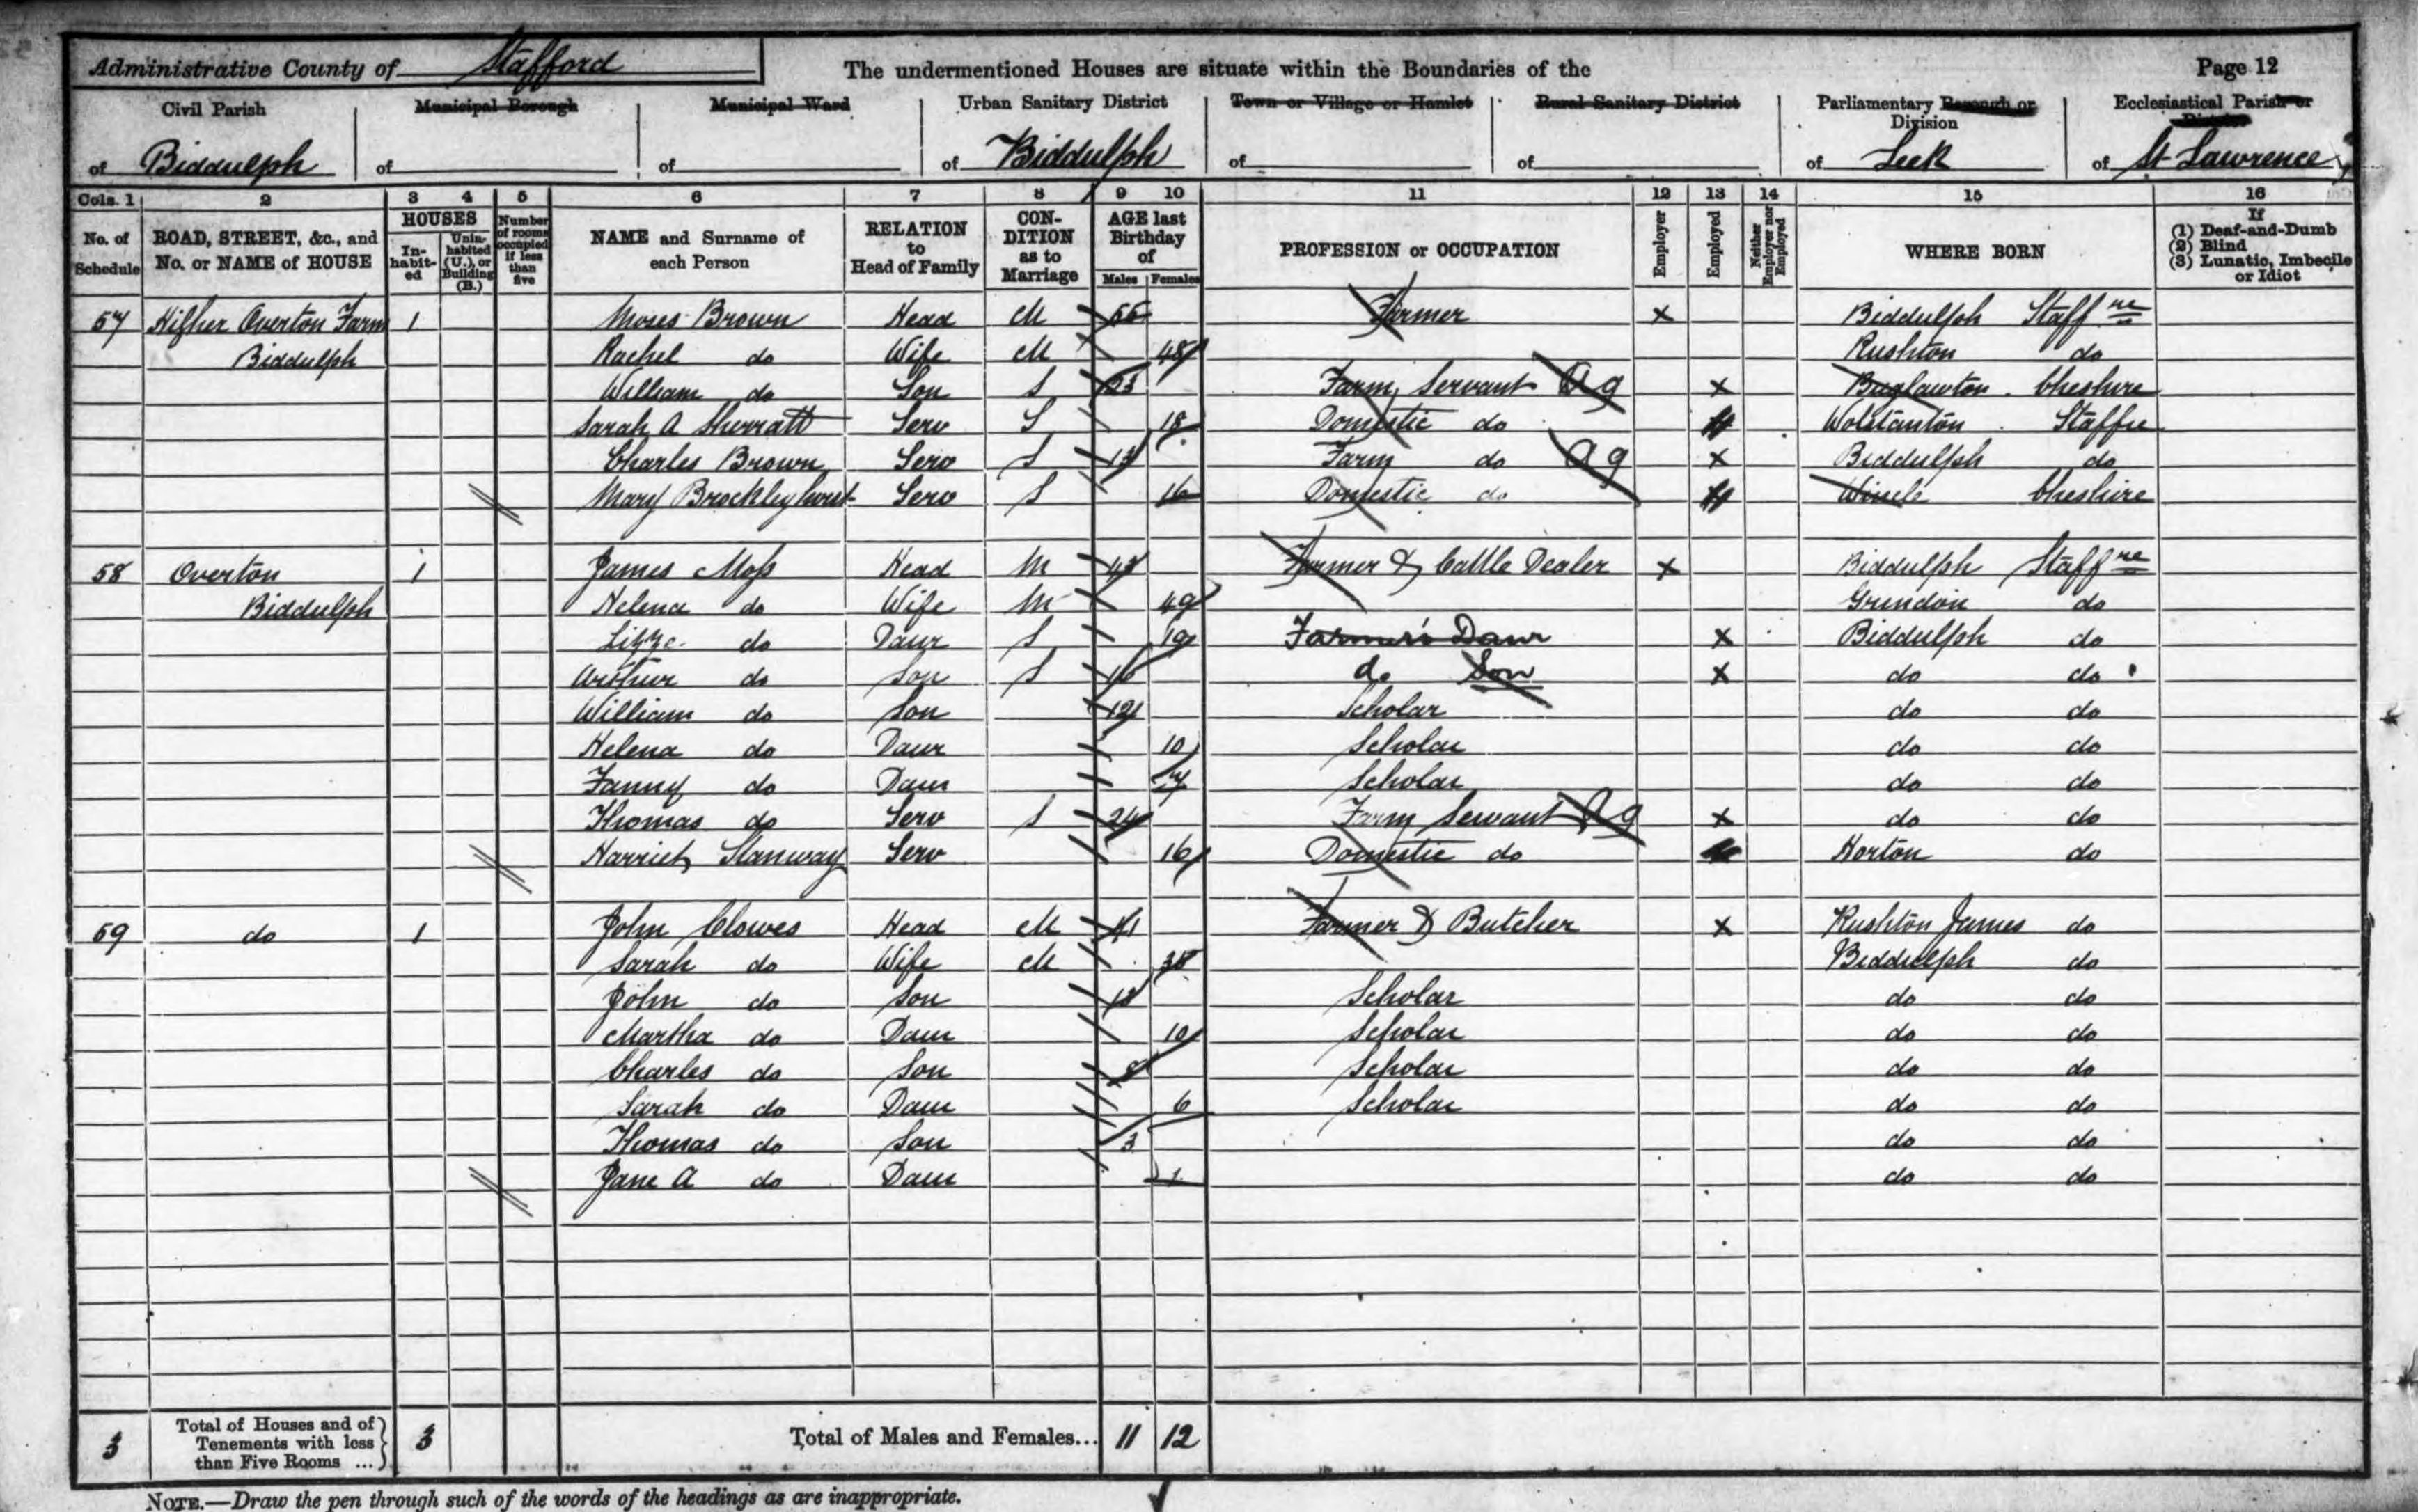 Administrative County of Stafford The undermentioned Houses are situate within the Boundaries of the Page 12
Civil Parish Municipal Borough Municipal Ward Urban Sanitary District Town or Village or Hamlet Rural Sanitary District Parliamentary Borough or Division Ecclesiastical Parish or District
of Biddulph of of of Biddulph of of of Leek of St Lawrence
Cols. 1 2 3 4 5 6 7 8 9 10 11 12 13 14 15 16
No. of Schedule ROAD, STREET, &c., and No. or NAME of HOUSE HOUSES Inhabited Uninhabited (U.), or Building (B.) Number of rooms occupied if less than five NAME and Surname of each Person RELATION to Head of Family CONDITION as to Marriage AGE last Birthday of Males Females PROFESSION or OCCUPATION Employer Employed Neither Employer nor Employed WHERE BORN If (1) Deaf-and-Dumb (2) Blind (3) Lunatic, Imbecile or Idiot
57 Higher Overton Farm 1 Moses Brown Head M Farmer x Biddulph Staffre
Biddulph Rachel do Wife M 48 Rushton do
William do Son S 23 Farm Servant Ag x Buglawton Cheshire
Sarah A Sherratt Serv S 18 Domestic do Wolstanton Staffre
Charles Brown Serv S 13 Farm do Ag x Biddulph do
Mary Brockleyhurst Serv S 16 Domestic do Wincle Cheshire
58 Overton 1 James Moss Head M 43 Farmer & Cattle Dealer x Biddulph Staffre
Biddulph Helena do Wife M 49 Grindon do
do Daur S 19 Farmer's Daur x Biddulph do
Arthur do Son S 16 do Son x do do
William do Son 12 Scholar do do
Helena do Daur 10 Scholar do do
Fanny do Daur 7 Scholar do do
Thomas do Serv S 24 Farm Servant Ag x do do
Harriet Stanway Serv 16 Domestic do Horton do
59 do 1 John Clowes Head M 41 Farmer & Butcher x Rushton James do
Sarah do Wife M Biddulph do
John do Son Scholar do do
Martha do Daur 10 Scholar do do
Charles do Son 8 Scholar do do
Sarah do Daur 6 Scholar do do
Thomas do Son 3 do do
Jane A do Daur 1 do do
3 Total of Houses and of Tenements with less than Five Rooms ... 3 Total of Males and Females... 11 12
NOTE.—Draw the pen through such of the words of the headings as are inappropriate.